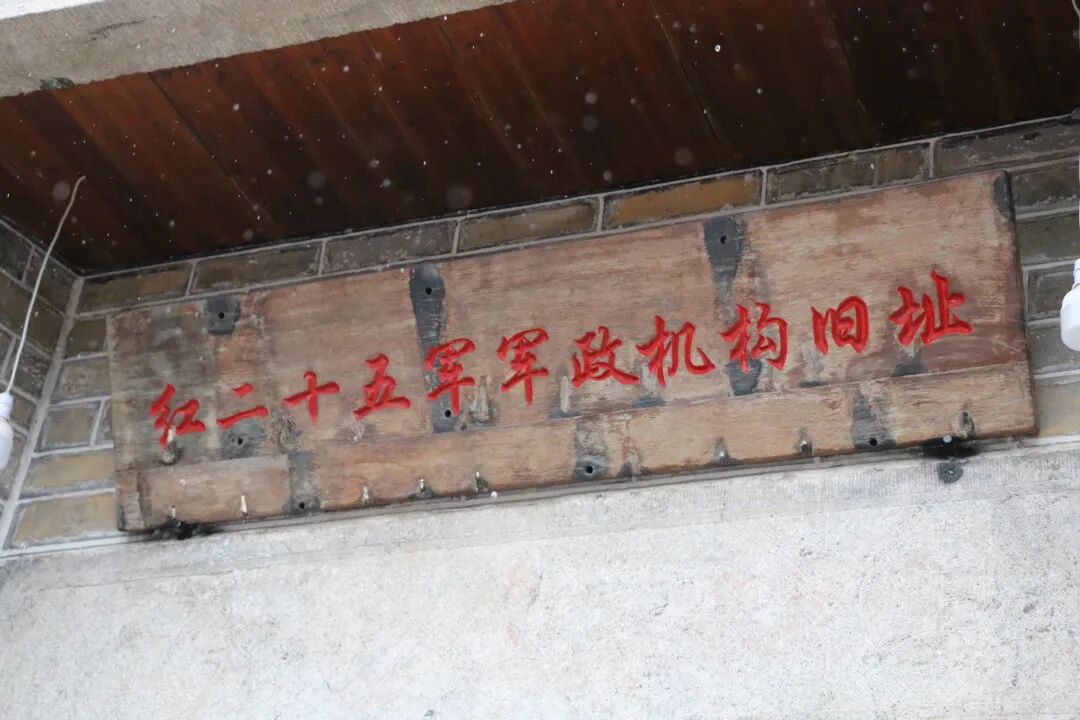 红二十五军军政机构旧址